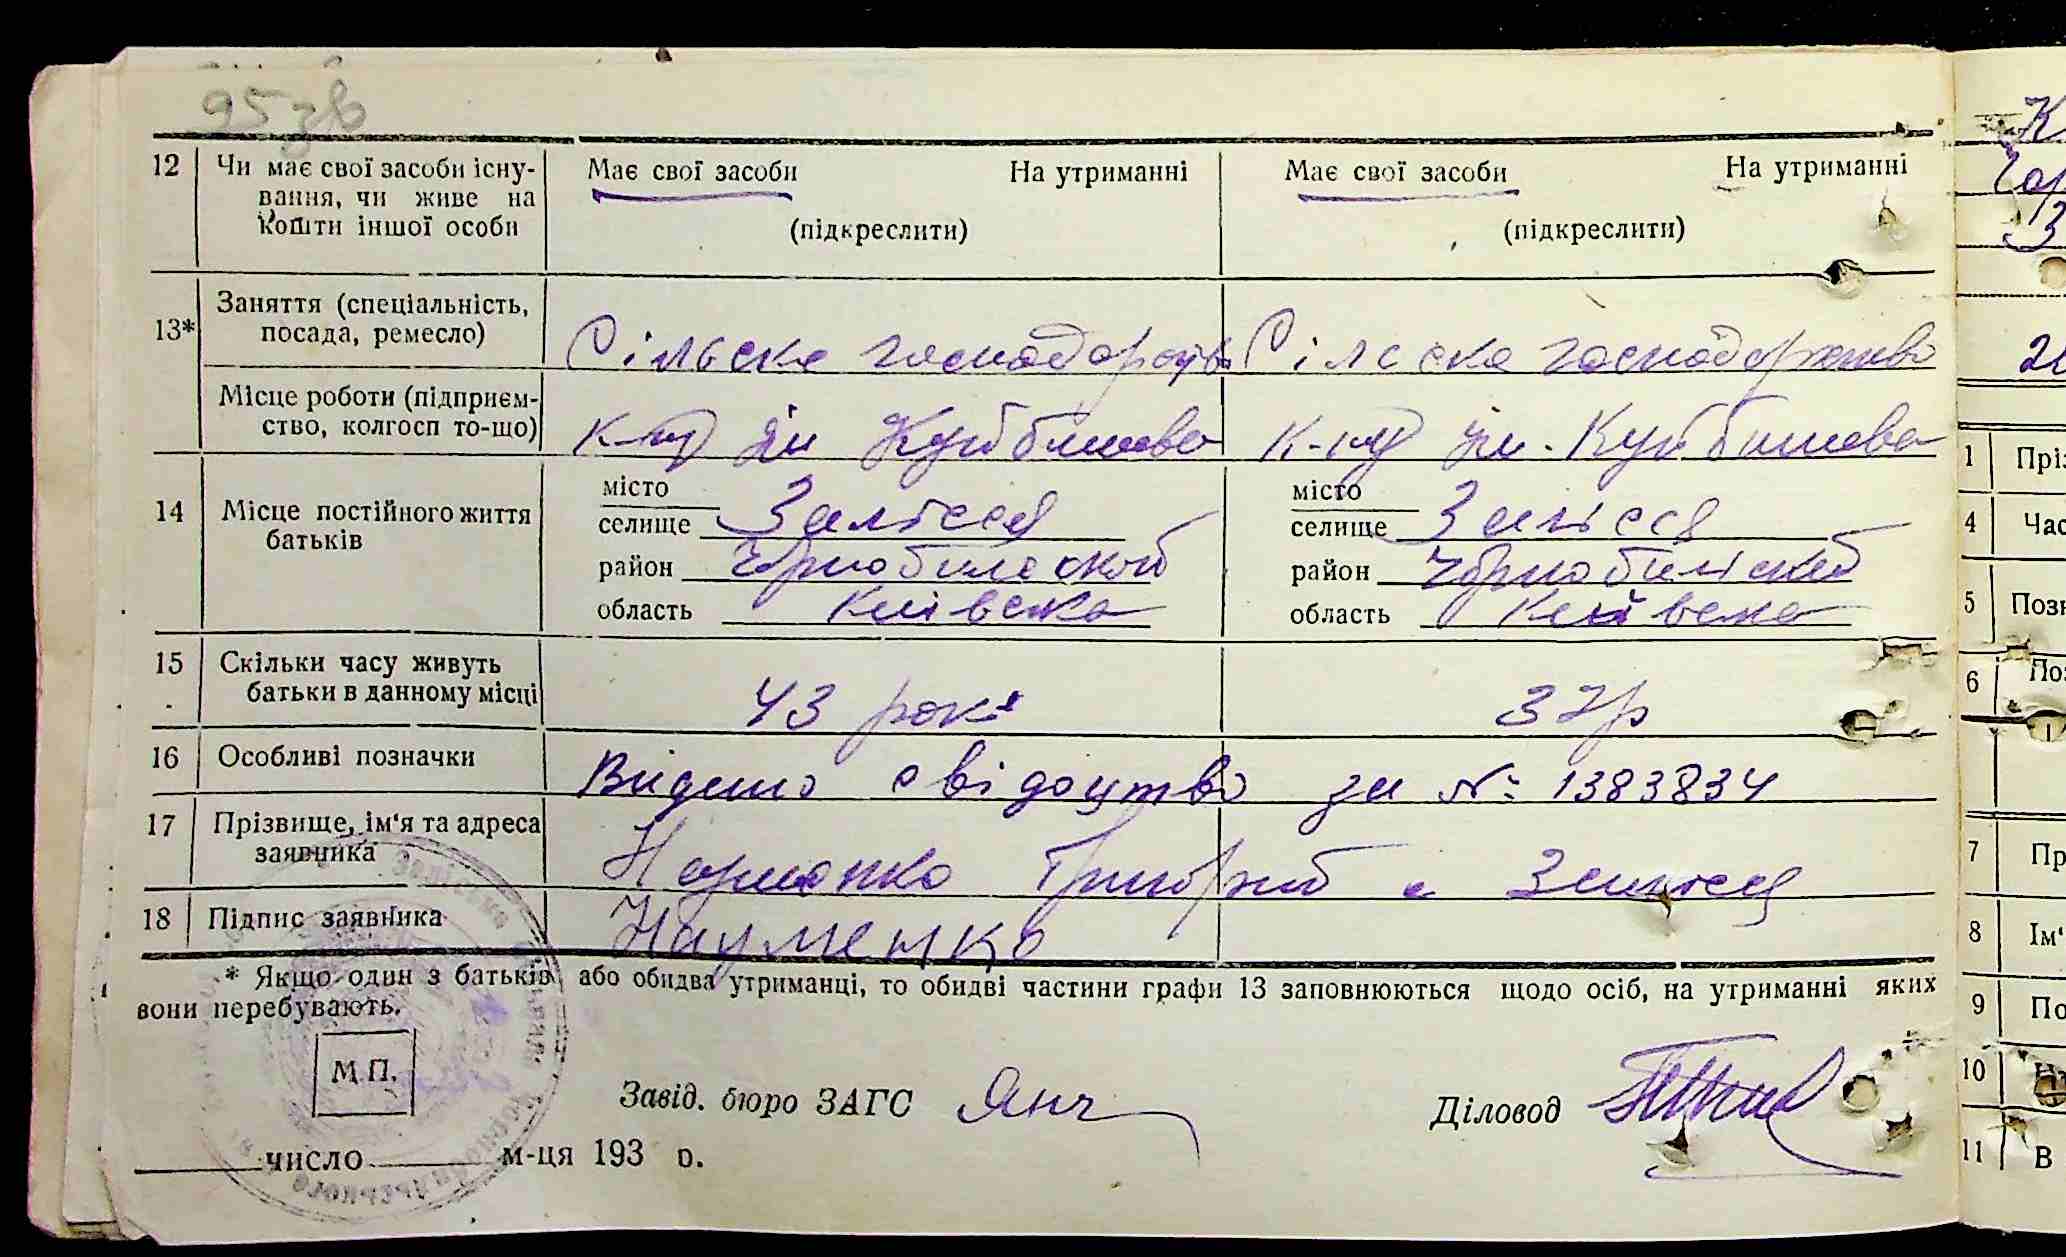 95зв
12 Чи має свої засоби існу- Має свої засоби На утриманні Має свої засоби На утриманні
вання, чи живе на
кошти іншої особи (підкреслити) (підкреслити)
13* Заняття (спеціальність,
посада, ремесло) Сільске господорств Сілсске господорство
Місце роботи (підприєм-
ство, колгосп то-що) к-г Ім Куйбишева К-г Ім. Куйбишева
14 Місце постійного життя
батьків
місто місто
селище Залісся селище Залісся
район Чорнобильский район Чорнобильский
область Київска область Київска
15 Скільки часу живуть
батьки в данному місці 43 рокі 37р
16 Особливі позначки Видано свідоцтво за № 1383834
17 Прізвище, ім'я та адреса
заявника Науменко Григорий с Залісся
18 Підпис заявника Науменко
* Якщо один з батьків або обидва утриманці, то обидві частини графи 13 заповнюються щодо осіб, на утриманні яких
вони перебувають.
М.П.
Завід. бюро ЗАГС Янч Діловод
число м-ця 193 р.
1 Пріз
4 Час
5 Позн
6 Поз
7 Пр
8 Ім'
9 По
10
11 В